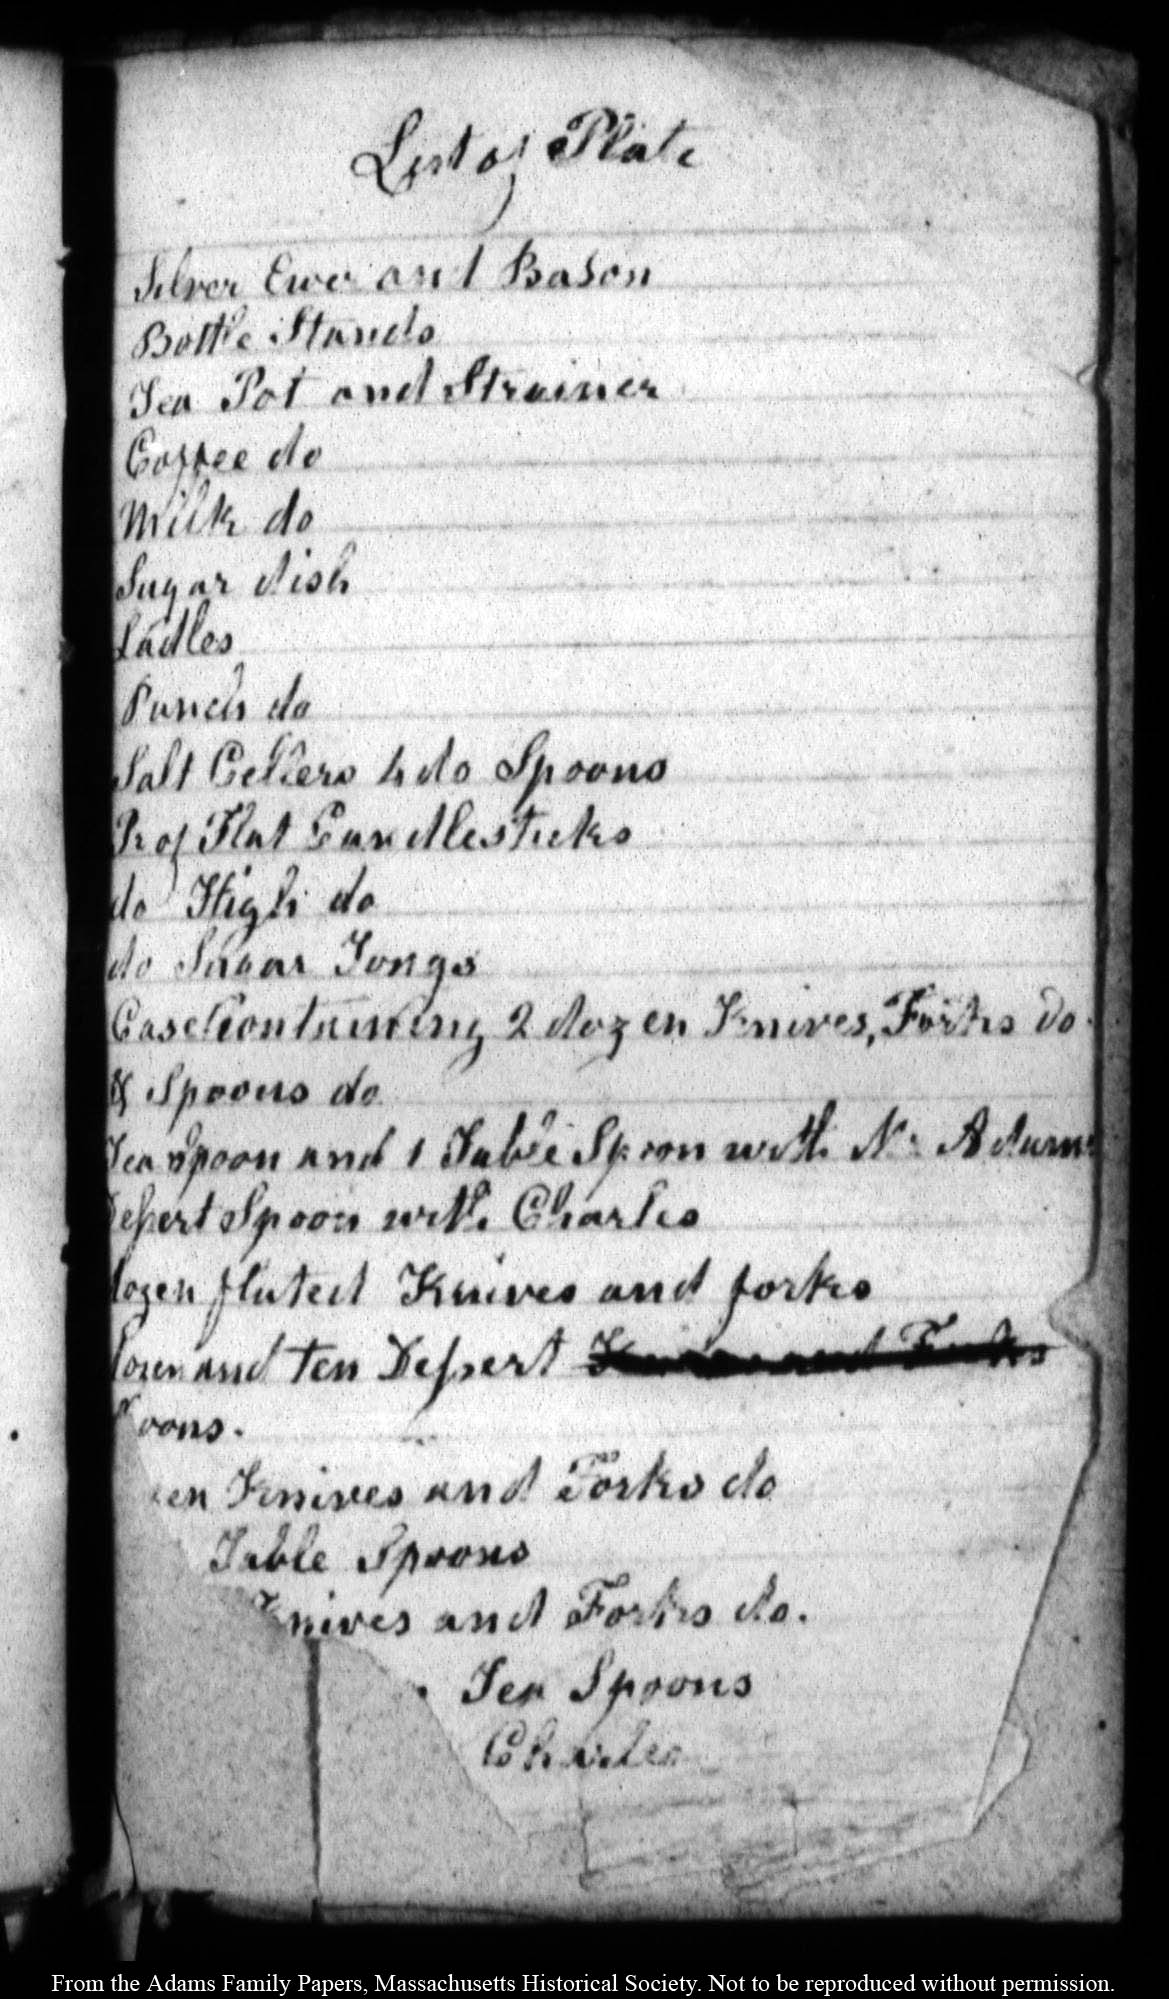 List of Plate
Silver Ewer and Bason
Bottle Stands
Tea Pot and Strainer
Coffee do
Milk do
Sugar dish
Ladles
Punch do
Salt Cellers 4 do Spoons
Pr of Flat Candlesticks
do High do
do Sugar Tongs
Case Containing 2 dozen Knives, Forks do
& Spoons do
Tea Spoon and 1 Table Spoon with Adams
Desert Spoon with Charles
dozen fluted Knives and forks
dozen and ten Dessert Knives and Forks
poons.
en Knives and Forks do
Table Spoons
Knives and Forks do.
Tea Spoons
Charles
From the Adams Family Papers, Massachusetts Historical Society. Not to be reproduced without permission.